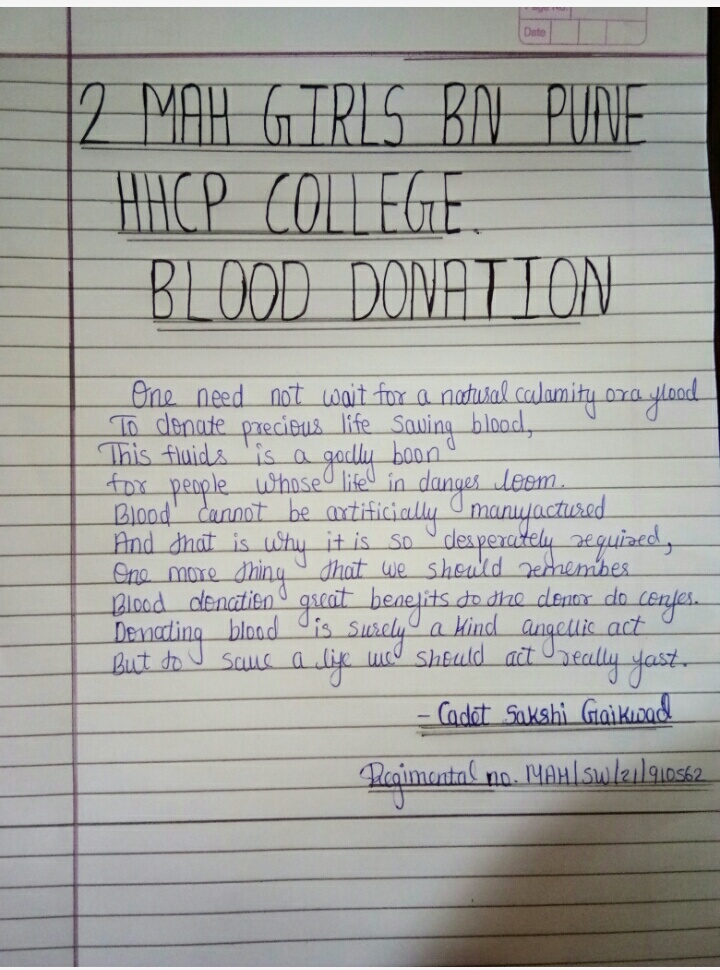 Page No
Date
2 MAH GIRLS BN PUNE
HHCP COLLEGE.
BLOOD DONATION
One need not wait for a natural calamity or a flood
To donate precious life saving blood,
This fluids is a godly boon
for people whose life in danger loom.
Blood cannot be artificially manufactured
And that is why it is so desperately required,
One more thing that we should remember
Blood donation great benefits to the donor do confer.
Donating blood is surely a kind angellic act
But to save a life we should act really fast.
- Cadet Sakshi Gaikwad
Regimental no. MAH/SW/21/910562